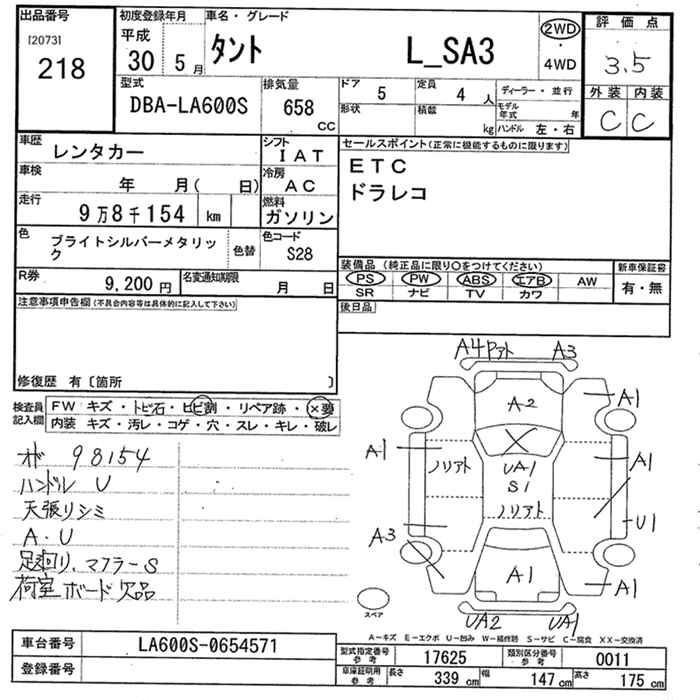 出品番号
[2073]
218
初度登録年月
平成
30 5 月
車名・グレード
タント L_SA3
2WD
・
4WD
評価点
3.5
外装 内装
C C
型式
DBA-LA600S
排気量
658
CC
ドア
5
定員
4 人
形状
積載
kg
ディーラー・並行
モデル年式 年
ハンドル 左・右
車歴
レンタカー
シフト
IAT
車検
年 月( 日)
冷房
AC
走行
9万8千154 km
燃料
ガソリン
色
ブライトシルバーメタリック
色替
色コード
S28
R券
9,200 円
名変通知期限
月 日
セールスポイント(正常に機能するものに限ります)
ETC
ドラレコ
装備品(純正品に限り○をつけてください)
PS PW ABS エアB AW
SR ナビ TV カワ
新車保証書
有・無
後日品
注意事項申告欄(不具合内容等は具体的に記入して下さい)
修復歴 有〔箇所 〕
検査員記入欄
FW キズ・トビ石・ヒビ割・リペア跡・×要
内装 キズ・汚レ・コゲ・穴・スレ・キレ・破レ
オド 98154
ハンドル U
天張リシミ
A.U
足廻り、マフラーS
荷室ボード欠品
A4 Pアト A3
A2
A1
A1
ノリアト
UA1
S1
A1
ノリアト
U1
A3
A1
A1
UA2 UA1
スペア
A-キズ E-エクボ U-凹み W-補修跡 S-サビ C-腐食 XX-交換済
車台番号
LA600S-0654571
登録番号
型式指定番号参考
17625
類別区分番号参考
0011
車庫証明用参考
長さ 339 cm
幅 147 cm
高さ 175 cm